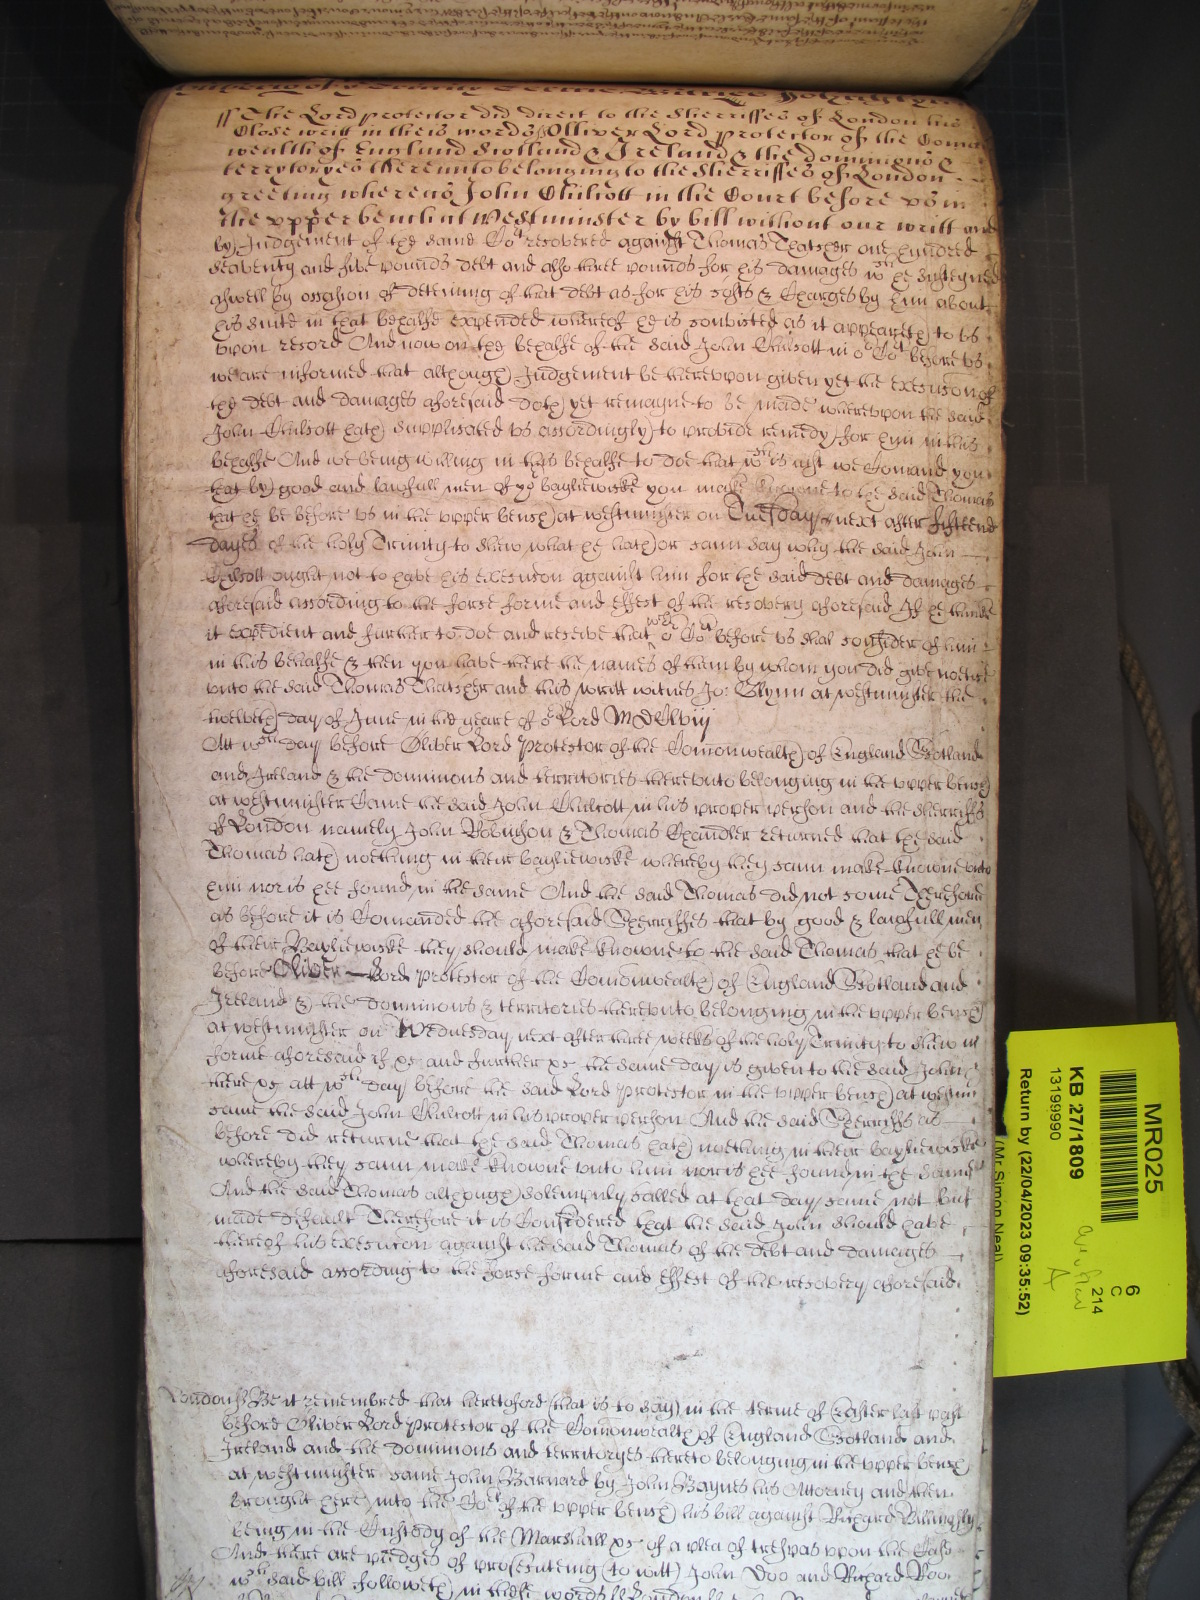 ss The Lord protector did direct to the Sherriffes of London his
Close writt in theis words ss Olliver Lord protector of the Comon
wealth of England Scotland & Ireland & the dominions &
terrytoryes thereunto belonging to the Sherriffes of London
greeting whereas John Chilcott in the Court before us in
the upper bench att Westminster by bill without our writt and
by Judgement of the same Cort recovered against Thomas Thatcher one hundred
seaventy and five pounds debt and also three pounds for his damages wch he susteyned
aswell by occasion of deteining of that debt as for his costs & Charges by him about
his suite in that behalfe expended whereof he is convicted as it appeareth to us
upon record And now on the behalfe of the said John Chilcott in or Cort before us
we are informed that although Judgement be thereupon given yet the execucon of
the debt and damages aforesaid doth yet remayne to be made whereupon the said
John Chilcott hath supplicated us accordingly to provide remedy for him in this
behalfe And we being willing in this behalfe to doe that wch is just we Comand you
that by good and lawfull men of yor bayliewicke you make knowne to the said Thomas
that he be before us in the upper bench at westminster on Tuesday next after fifteene
dayes of the holy Trinity to shew what he hath or cann say why the said John
Chilcott ought not to have his execucon against him for the said debt and damages
aforesaid according to the force forme and effect of the recovery aforesaid If he thinke
it expedient and further to doe and receive that wch or Cort before us shal consider of him
in this behalfe & then you have there the names of them by whom you did give notice
unto the said Thomas Thatcher and this writt witnes Jo: Glynn at westminster the
twelveth day of June in the yeare of or Lord MDClvij
Att wch day before Oliver Lord Protector of the Comonwealth of England Scotland
and Ireland & the dominions and territories thereunto belonging in the upper bench
at westminster Came the said John Chilcott in his proper person and the sherriffs
of London namely John Robinson & Thomas Chandler returned that the said
Thomas hath noething in their bayliewicke whereby they cann make knowne unto
him nor is hee found in the same And the said Thomas did not come Therefore
as before it is Comanded the aforesaid Sherriffes that by good & lawfull men
of their Bayliewicke they should make knowne to the said Thomas that he be
before Oliver Lord Protector of the Comonwealth of England Scotland and
Ireland & the dominions & territories thereunto belonging in the upper bench
at westminster on Wednesday next after three weeks of the holy Trinity to shew in
forme aforesaid if &c and further &c the same day is given to the said John
there &c att wch day before the said Lord Protector in the upper bench at westmr
came the said John Chilcott in his proper person And the said Sherriffs as
before did returne that the said Thomas hath noething in their bayliewicke
whereby they cann make knowne unto him nor is hee found in the same
And the said Thomas although solempnly called at that day came not but
made default Therefore it is Considered that the said John should have
thereof his execucon against the said Thomas of the debt and damages
aforesaid according to the force forme and effect of the recovery aforesaid
London ss Be it remembred that heretofore (that is to say) in the terme of Easter last past
before Oliver Lord Protector of the Comonwealth of England Scotland and
Ireland and the dominions and territoryes thereto belonging in the upper bench
at westminster came John Barnard by John Baynes his Attorney and then
brought here into the Cort of the upper bench his bill against Richard Billingsly
being in the Custody of the Marshall &c of a plea of trespas upon the Case
And there are pledges of prosecuteing (to witt) John Doo and Richard Roo
wch said bill followeth in theise words ss London ss
MR025
6
C
214
KB 27/1809
13199990
Return by (22/04/2023 09:35:52)
(Mr Simon Neal)